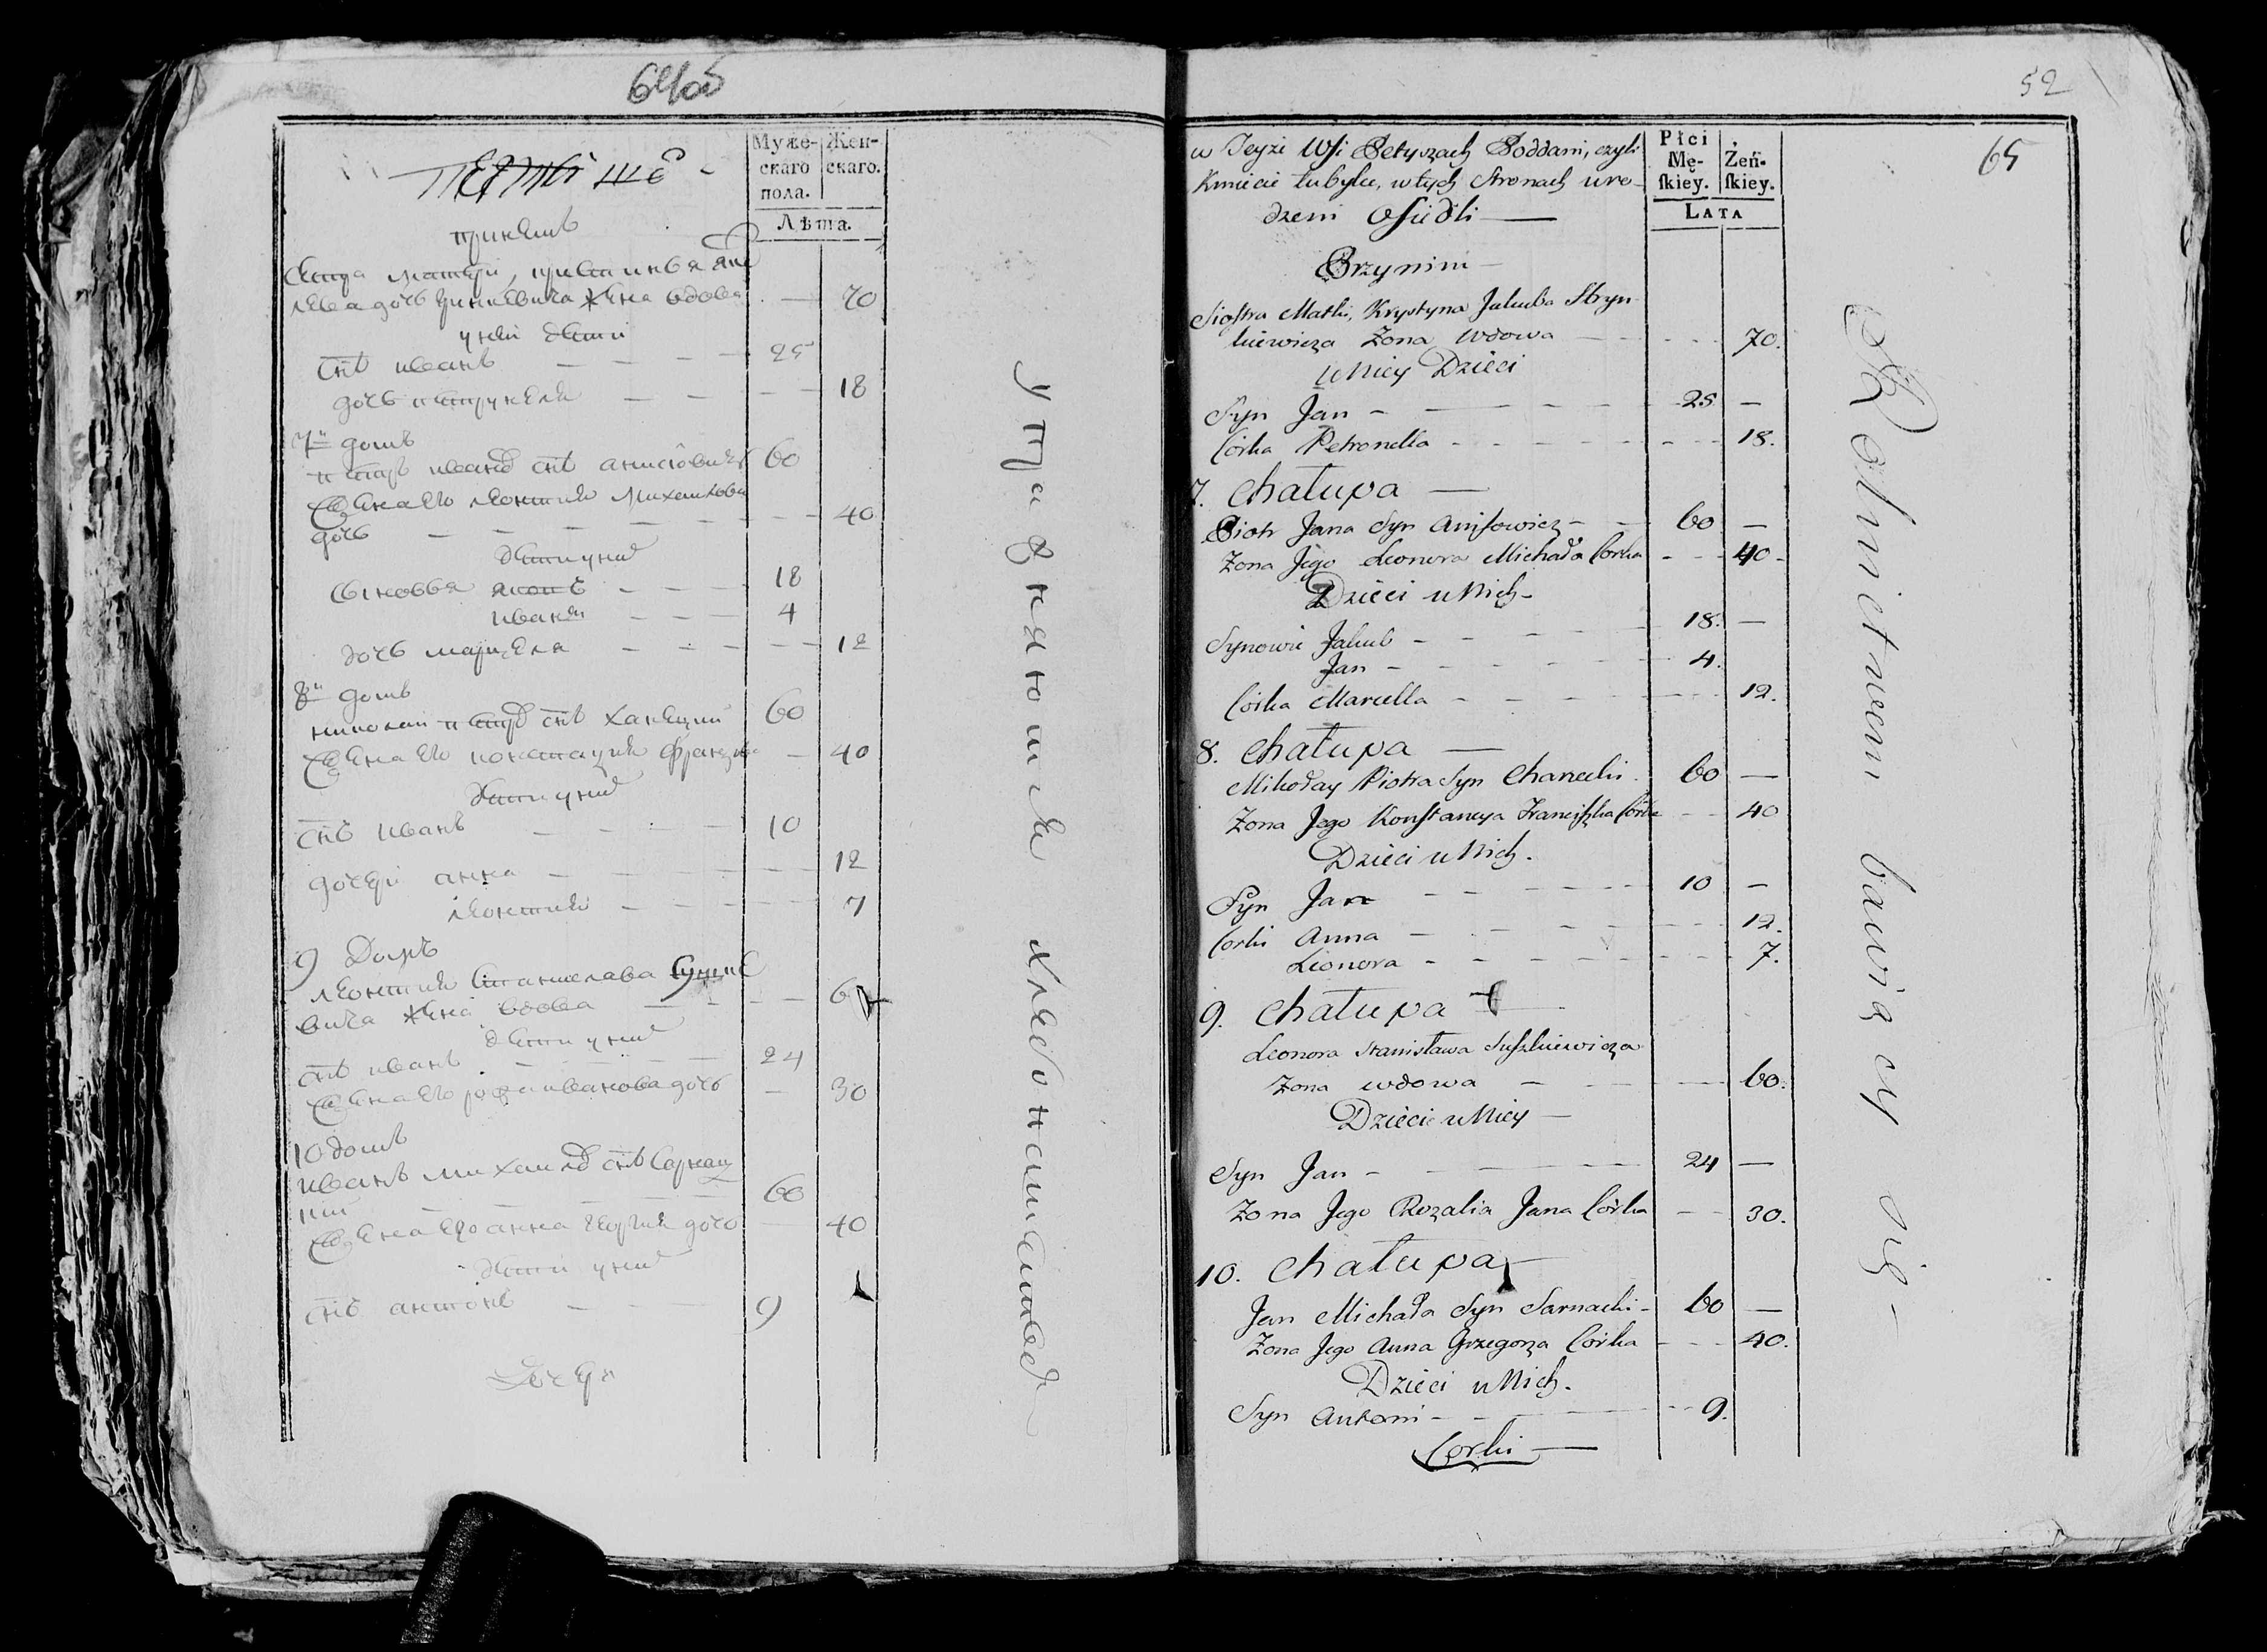 64об
Муже-
скаго
пола.
Жен-
скаго.
Лѣта.
70
у ней дети
сн̃ъ иванъ 25
дочь петрунеля 18
7й домъ
петръ ивана сн̃ъ анисовичъ 60
Жена его Михайлова
дочь 40
дети у них
сыновья якопъ 18
иванъ 4
дочь марцеля 12
8й домъ
николай петра сн̃ъ ханецкий 60
жена его констация 40
дети у них
сн̃ъ иванъ 10
дочери анна 12
7
9 Домъ
Станислава
вича жена вдова
дети у ней
сн̃ъ иванъ 24
жена его иванова дочь 30
10 домъ
иванъ михаила сн̃ъ Сарнац
кий 60
жена его анна дочь 40
дети у них
сн̃ъ антонъ 9
Дочери
упражняются хлебопашеством
52
65
w Teyże Wsi Petyszach Poddani, czyli
Kmiecie tubylcy, w tych stronach uro-
dzeni Osiedli
Płci
Mę-
ſkiey.
Żeń-
ſkiey.
LATA
Przynim
Siostra Matki, Krystyna Jakuba
Zona Wdowa 70.
u Niey Dzieci
Syn Jan 25 —
Corka Petronella 18.
7. Chałupa
Piotr Jana Syn Anisowicz 60 —
Zona Jego Leonora Michała Corka 40
Dzieci u Nich
Synowie Jakub 18. —
Jan 4.
Corka Marcella 12.
8. Chałupa
Mikołay Piotra Syn Chanecki 60 —
Zona Jego Konstancya Franciszka Corka 40
Dzieci u Nich.
Syn Jan 10 —
Corki Anna 12.
Leonora 7.
9. Chałupa
Leonora Stanisława Suszkiewicza
Zona wdowa 60.
Dzieci u Niey
Syn Jan 24 —
Zona Jego Rozalia Jana Corka 30.
10. Chałupa
Jan Michała Syn Sarnacki 60 —
Zona Jego Anna Grzegorza Corka 40.
Dzieci u Nich.
Syn Antoni 9.
Corki
Rolnictwem bawiący się